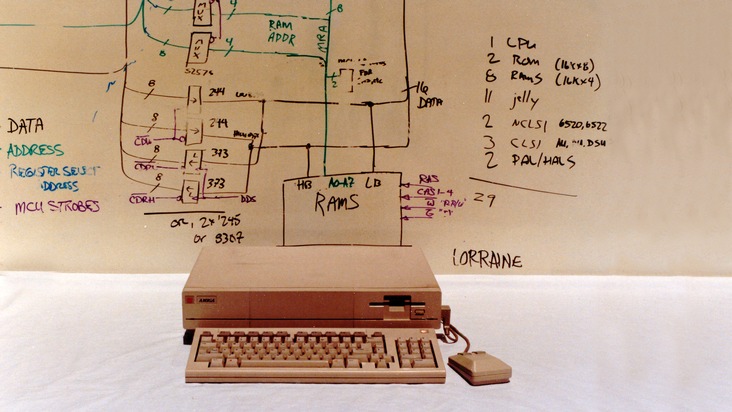 MUX
4
8
MUX
4
8
S257s
RAM
ADDR
MRA
8
2
16
DATA
8
244
8
244
CDR
8
373
8
373
CDRH
DDS
OR, 2x '245
OR 8307
DATA
ADDRESS
REGISTER SELECT
ADDRESS
MCU STROBES
HB A0-A7 LB
RAMS
RAS
CAS1-4
W
G
1 CPU
2 ROM (16K×8)
8 RAMS (16K×4)
11 jelly
2 NCLSI 6520, 6522
3 CLSI
2 PAL/HALS
29
LORRAINE
AMIGA